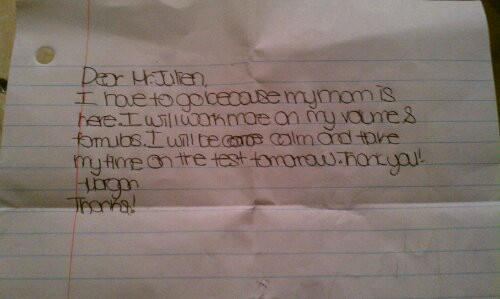 Dear Mr. Julien,
I have to go because my mom is
here. I will work more on my volume &
formulas. I will be calm and take
my time on the test tomorrow. Thank you!
-Morgan
Thanks!